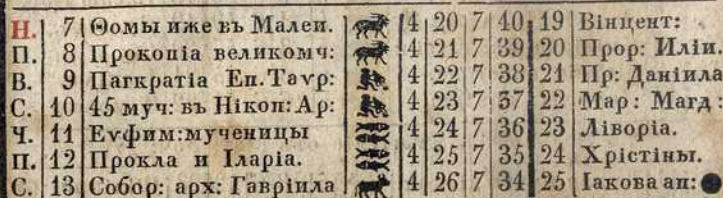 Н. 7 Ѳомы иже въ Малеи. 4 20 7 40 19 Вінцент:
П. 8 Прокопіа великомч: 4 21 7 39 20 Прор: Иліи.
В. 9 Пагкратіа Еп. Таѵр: 4 22 7 38 21 Пр: Даніила
С. 10 45 муч: въ Нікоп: Ар: 4 23 7 37 22 Мар: Магд:
Ч. 11 Еѵфим: мученицы 4 24 7 36 23 Ліворіа.
П. 12 Прокла и Іларіа. 4 25 7 35 24 Хрістіны.
С. 13 Собор: арх: Гавріила 4 26 7 34 25 Іакова ап: